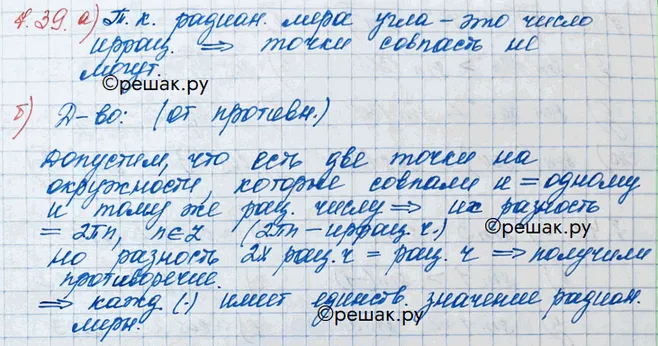 4.39. а) Т.к. радиан. мера угла – это число
иррац. ⇒ точки совпасть не
могут.
©решак.ру
б) Д-во: (от противн.)
Допустим, что есть две точки на
окружности, которые совпали и = одному
и тому же рац. числу ⇒ их разность
= 2πn, n∈Z (2πn – иррац. ч.)
©решак.ру
но разность 2х рац. ч = рац. ч ⇒ получили
противоречие.
⇒ кажд. (·) имеет единств. значение радиан.
меры.
©решак.ру